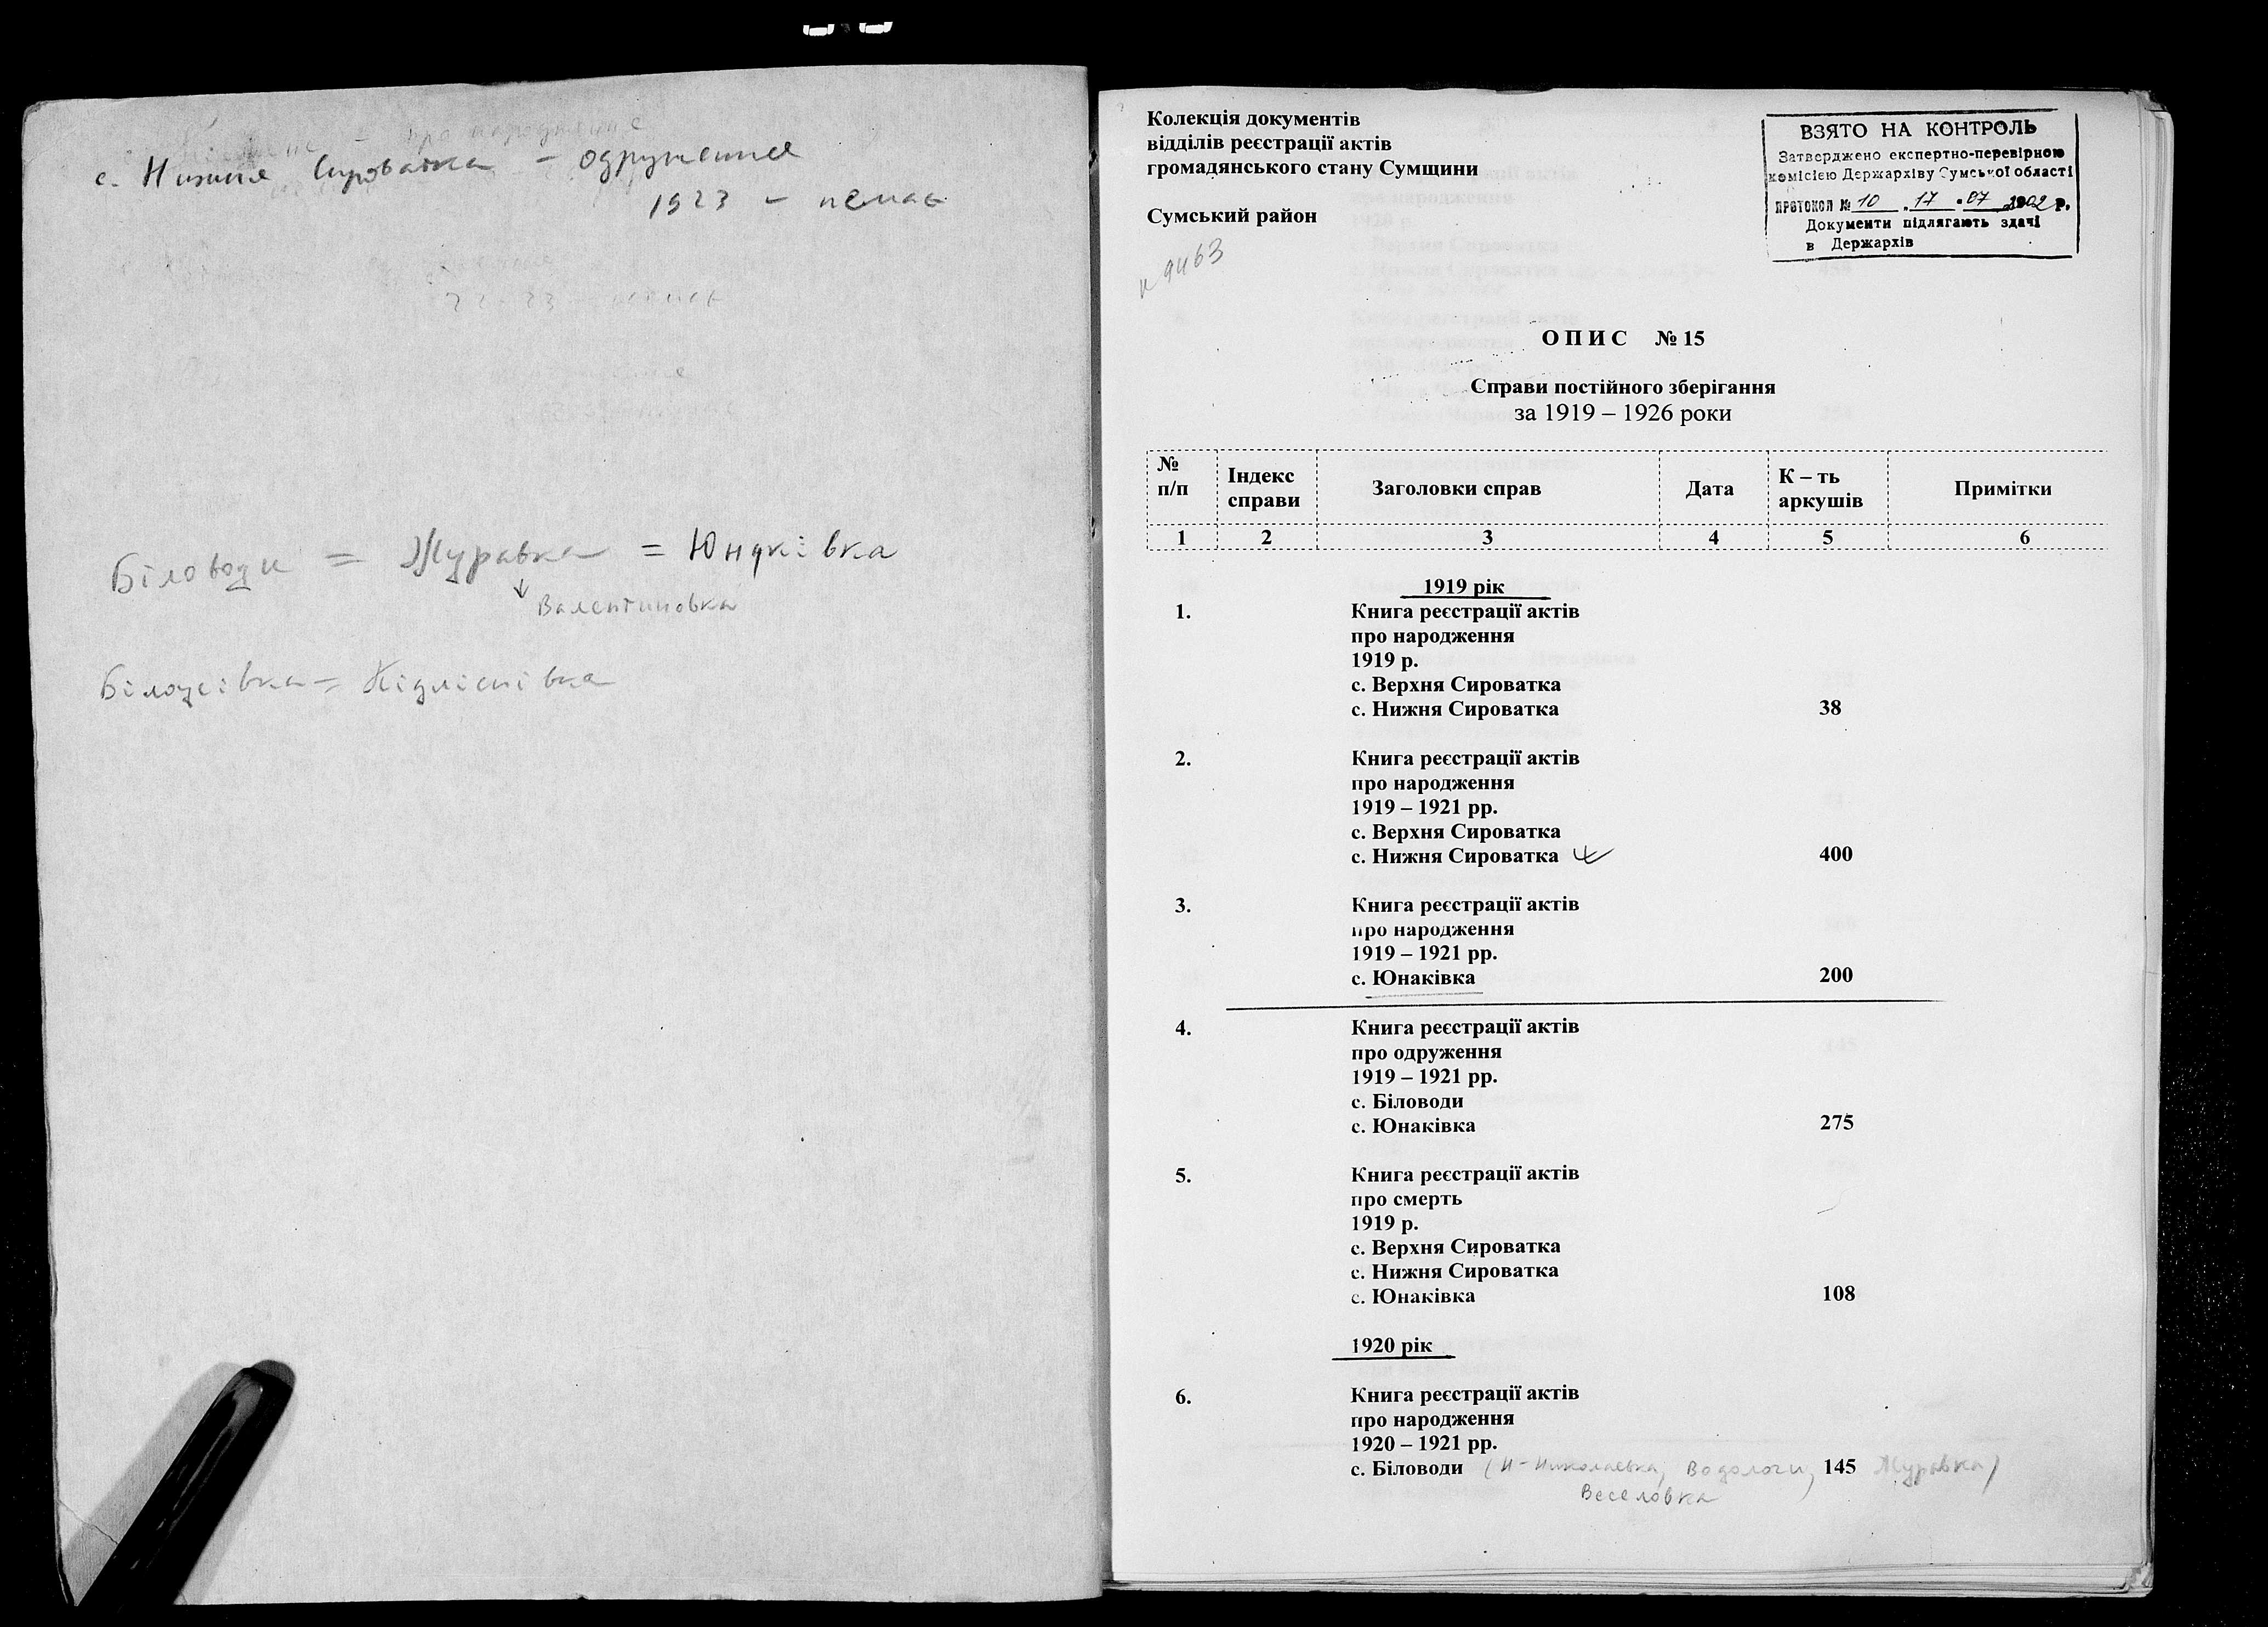 про народження
с. Нижня Сироватка – одруження
1923 – немає
22-23 – немає
Біловоди = Журавка = Юнаківка
↓
Валентиновка
Білоусівка = Кідлісніівка
Колекція документів
відділів реєстрації актів
громадянського стану Сумщини
Сумський район
н 9463
ВЗЯТО НА КОНТРОЛЬ
Затверджено експертно-перевірною
комісією Держархіву Сумської області
ПРОТОКОЛ № 10 . 17 . 07 2002 р.
Документи підлягають здачі
в Держархів
ОПИС № 15
Справи постійного зберігання
за 1919 – 1926 роки
№ п/п Індекс справи Заголовки справ Дата К – ть аркушів Примітки
1 2 3 4 5 6
1919 рік
1. Книга реєстрації актів
про народження
1919 р.
с. Верхня Сироватка
с. Нижня Сироватка 38
2. Книга реєстрації актів
про народження
1919 – 1921 рр.
с. Верхня Сироватка
с. Нижня Сироватка 400
3. Книга реєстрації актів
про народження
1919 – 1921 рр.
с. Юнаківка 200
4. Книга реєстрації актів
про одруження
1919 – 1921 рр.
с. Біловоди
с. Юнаківка 275
5. Книга реєстрації актів
про смерть
1919 р.
с. Верхня Сироватка
с. Нижня Сироватка
с. Юнаківка 108
1920 рік
6. Книга реєстрації актів
про народження
1920 – 1921 рр.
с. Біловоди (Н-Николаевка, Водологи, 145 Журавка)
Веселовка